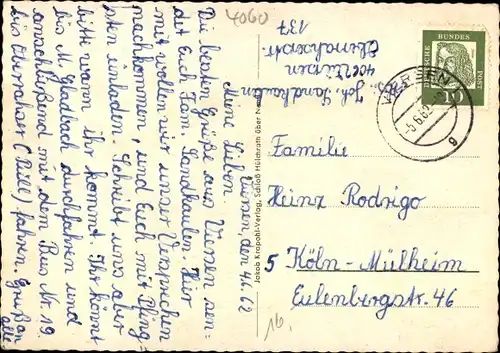 4060
Joh. Sandkaulen
406 Viersen
137
Viersen den 4.6.62
Meine Lieben
Die besten Grüße aus Viersen sen-
det Euch Fam. Sandkaulen. Hier
mit wollen wir unser Versprechen
nachkommen, und Euch mit Pfing-
sten einladen. Schreibt uns aber
bitte wann ihr kommt. Ihr könnt
bis M. Gladbach durchfahren und
anschließend mit dem Bus Nr. 19.
bis fahren. Gruß an
alle
Jakob Krapohl-Verlag, Schloß Hülchrath über
DEUTSCHE BUNDESPOST
10
VIERSEN
-5.6.62
g
Familie
Heinz Rodrigo
5 Köln-Mülheim
Eulenbergstr. 46
16.